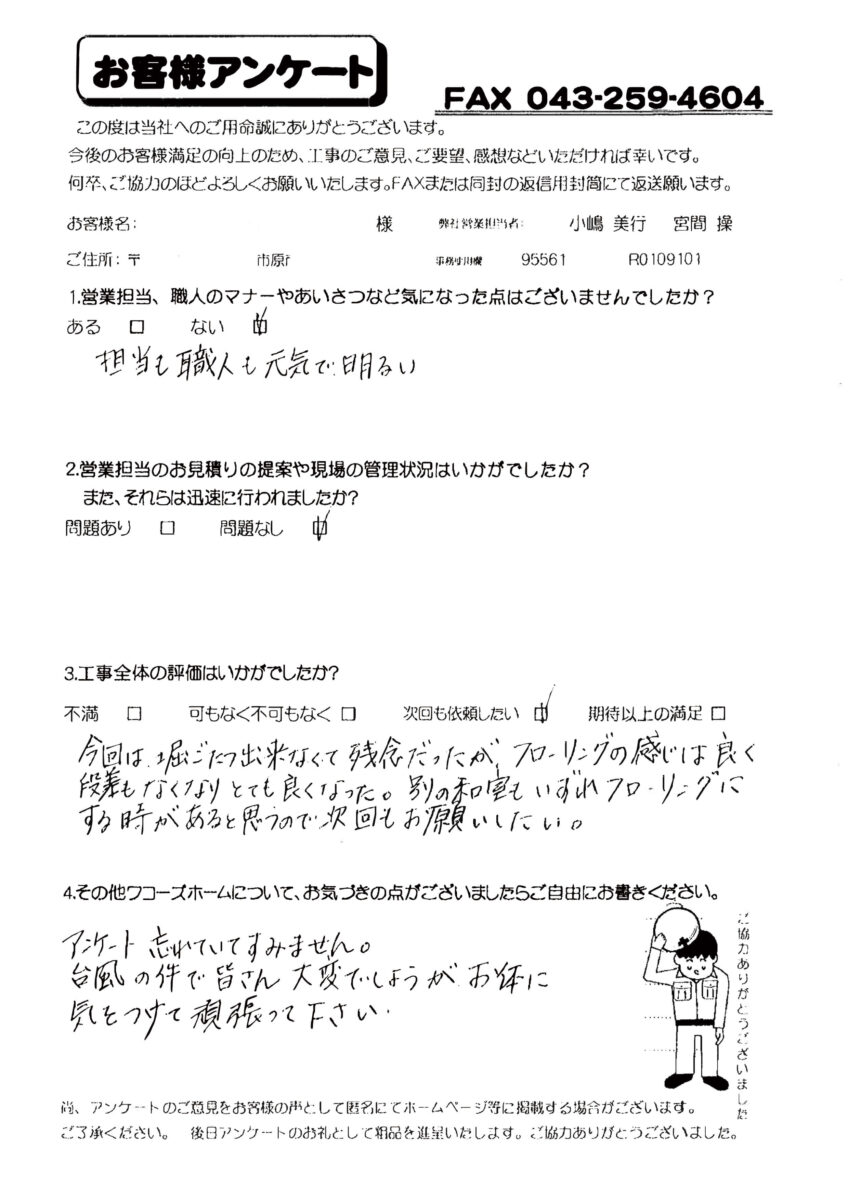 お客様アンケート
FAX 043-259-4604
この度は当社へのご用命誠にありがとうございます。
今後のお客様満足の向上のため、工事のご意見、ご要望、感想などいただければ幸いです。
何卒、ご協力のほどよろしくお願いいたします。FAXまたは同封の返信用封筒にて返送願います。
お客様名: 様 弊社営業担当者: 小嶋 美行 宮間 操
ご住所:〒 市原市 事務専用欄 95561 R0109101
1.営業担当、職人のマナーやあいさつなど気になった点はございませんでしたか?
ある □ ない ☑
担当も職人も元気で明るい
2.営業担当のお見積りの提案や現場の管理状況はいかがでしたか?
また、それらは迅速に行われましたか?
問題あり □ 問題なし ☑
3.工事全体の評価はいかがでしたか?
不満 □ 可もなく不可もなく □ 次回も依頼したい ☑ 期待以上の満足 □
今回は、堀ごたつ出来なくて残念だったが、フローリングの感じは良く
段差もなくなりとても良くなった。別の和室もいずれフローリングに
する時があると思うので次回もお願いしたい。
4.その他ワコーズホームについて、お気づきの点がございましたらご自由にお書きください。
アンケート忘れていてすみません。
台風の件で皆さん大変でしょうがお体に
気をつけて頑張って下さい.
ご協力ありがとうございました
尚、アンケートのご意見をお客様の声として匿名にてホームページ等に掲載する場合がございます。
ご了承ください。 後日アンケートのお礼として粗品を進呈いたします。ご協力ありがとうございました。